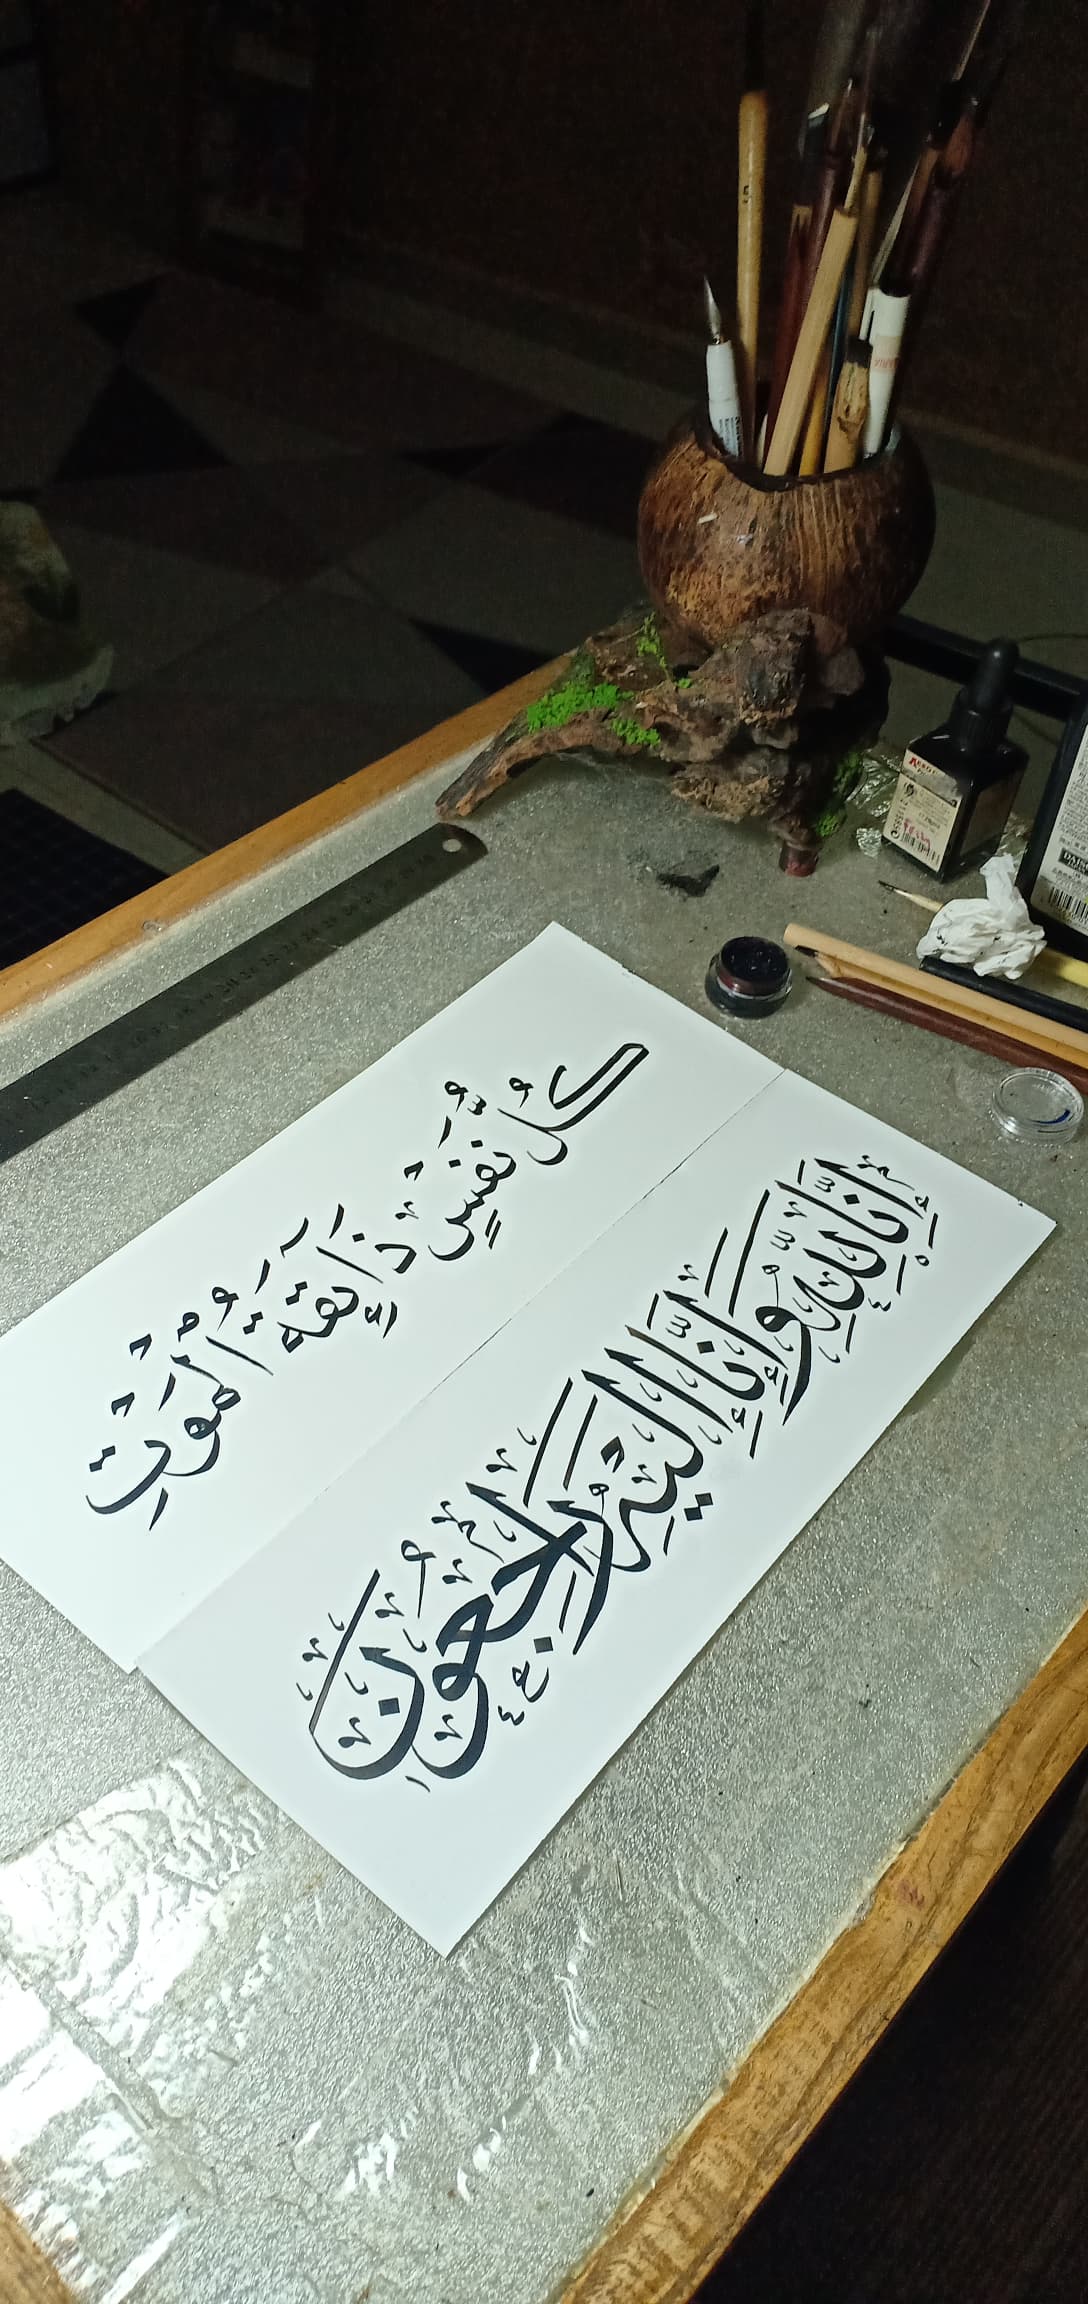 كُلُّ نَفْسٍ ذَائِقَةُ الْمَوْتِ
إِنَّا لِلّٰهِ وَإِنَّا إِلَيْهِ رَاجِعُونَ